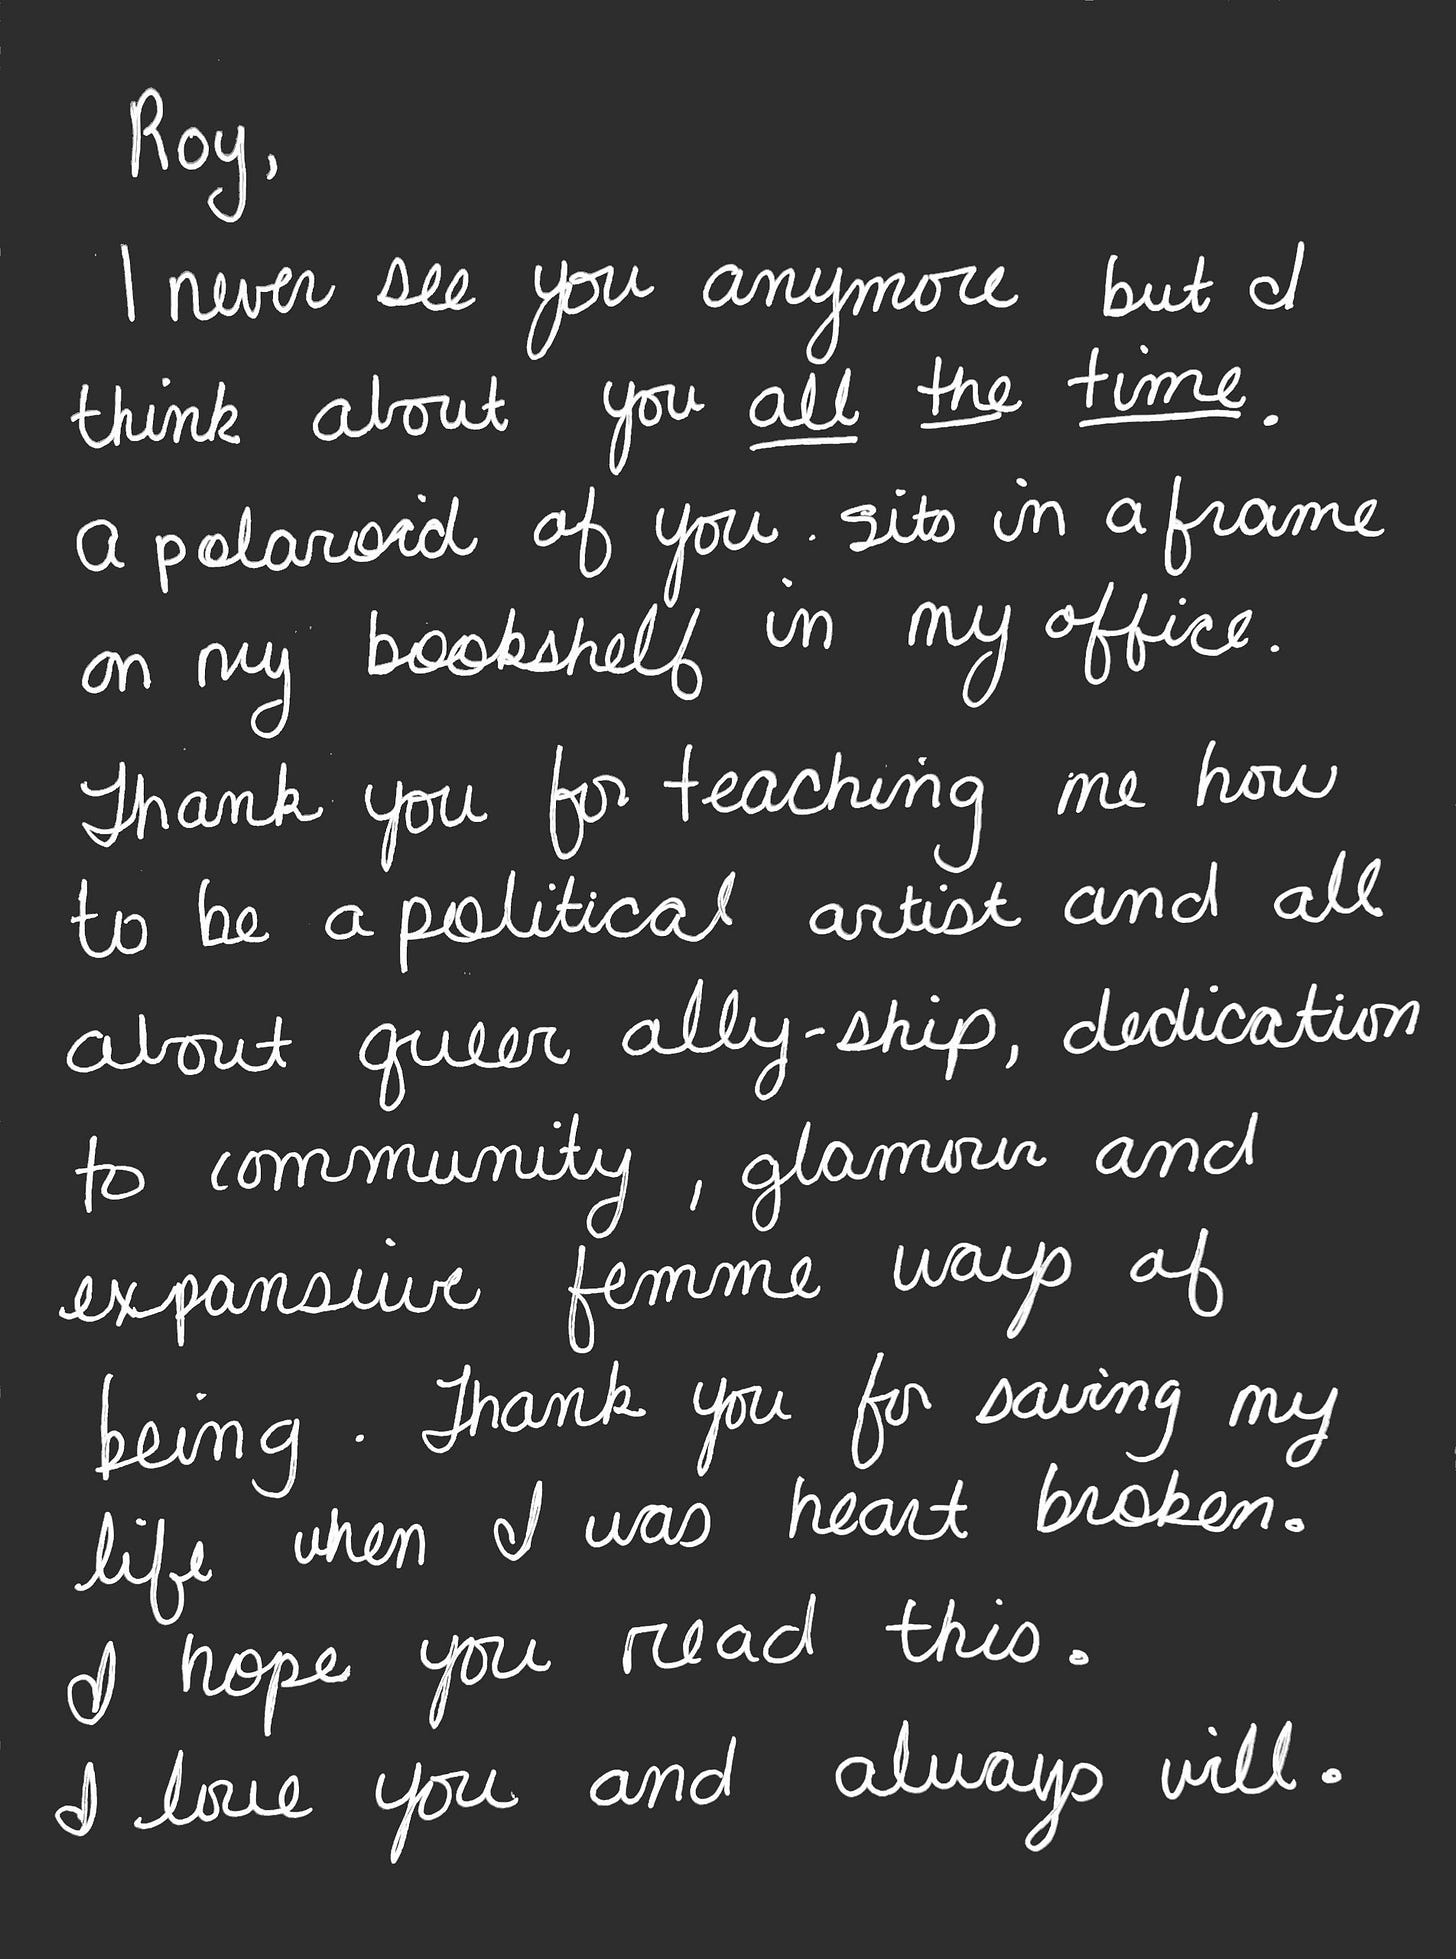 Roy,
I never see you anymore but I
think about you all the time.
A polaroid of you. sits in a frame
on my bookshelf in my office.
Thank you for teaching me how
to be a political artist and all
about queer ally-ship, dedication
to community, glamour and
expansive femme ways of
being. Thank you for saving my
life when I was heart broken.
I hope you read this.
I love you and always will.